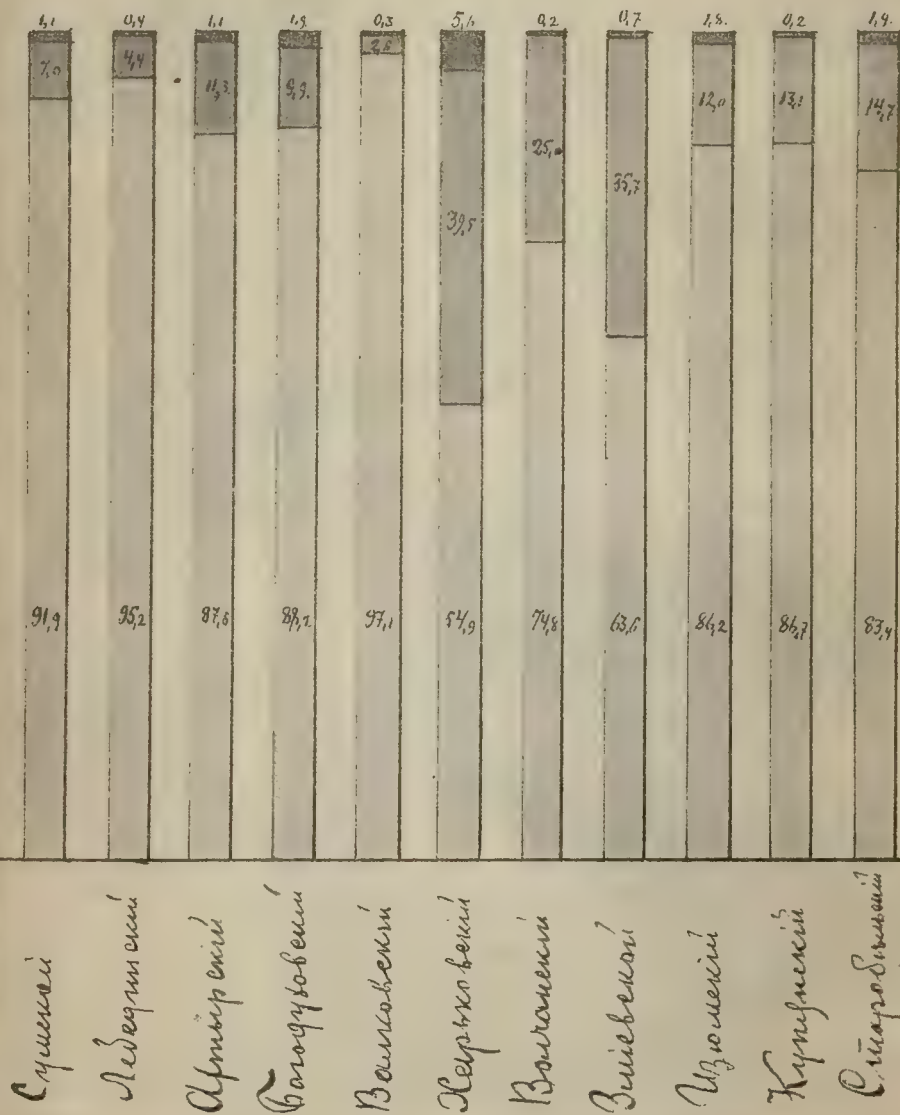 1,1 0,4 1,1 1,9 0,3 5,6 0,2 0,7 1,8 0,2 1,9
7,0 4,4 11,3 9,9 2,6 39,5 25,0 35,7 12,0 13,1 14,7
91,9 95,2 87,6 88,2 97,1 54,9 74,8 63,6 86,2 86,7 83,4
Сумской
Лебединскій
Ахтырскій
Богодуховскій
Валковскій
Харьковскій
Волчанскій
Зміевской
Изюмскій
Купянскій
Старобѣльскій